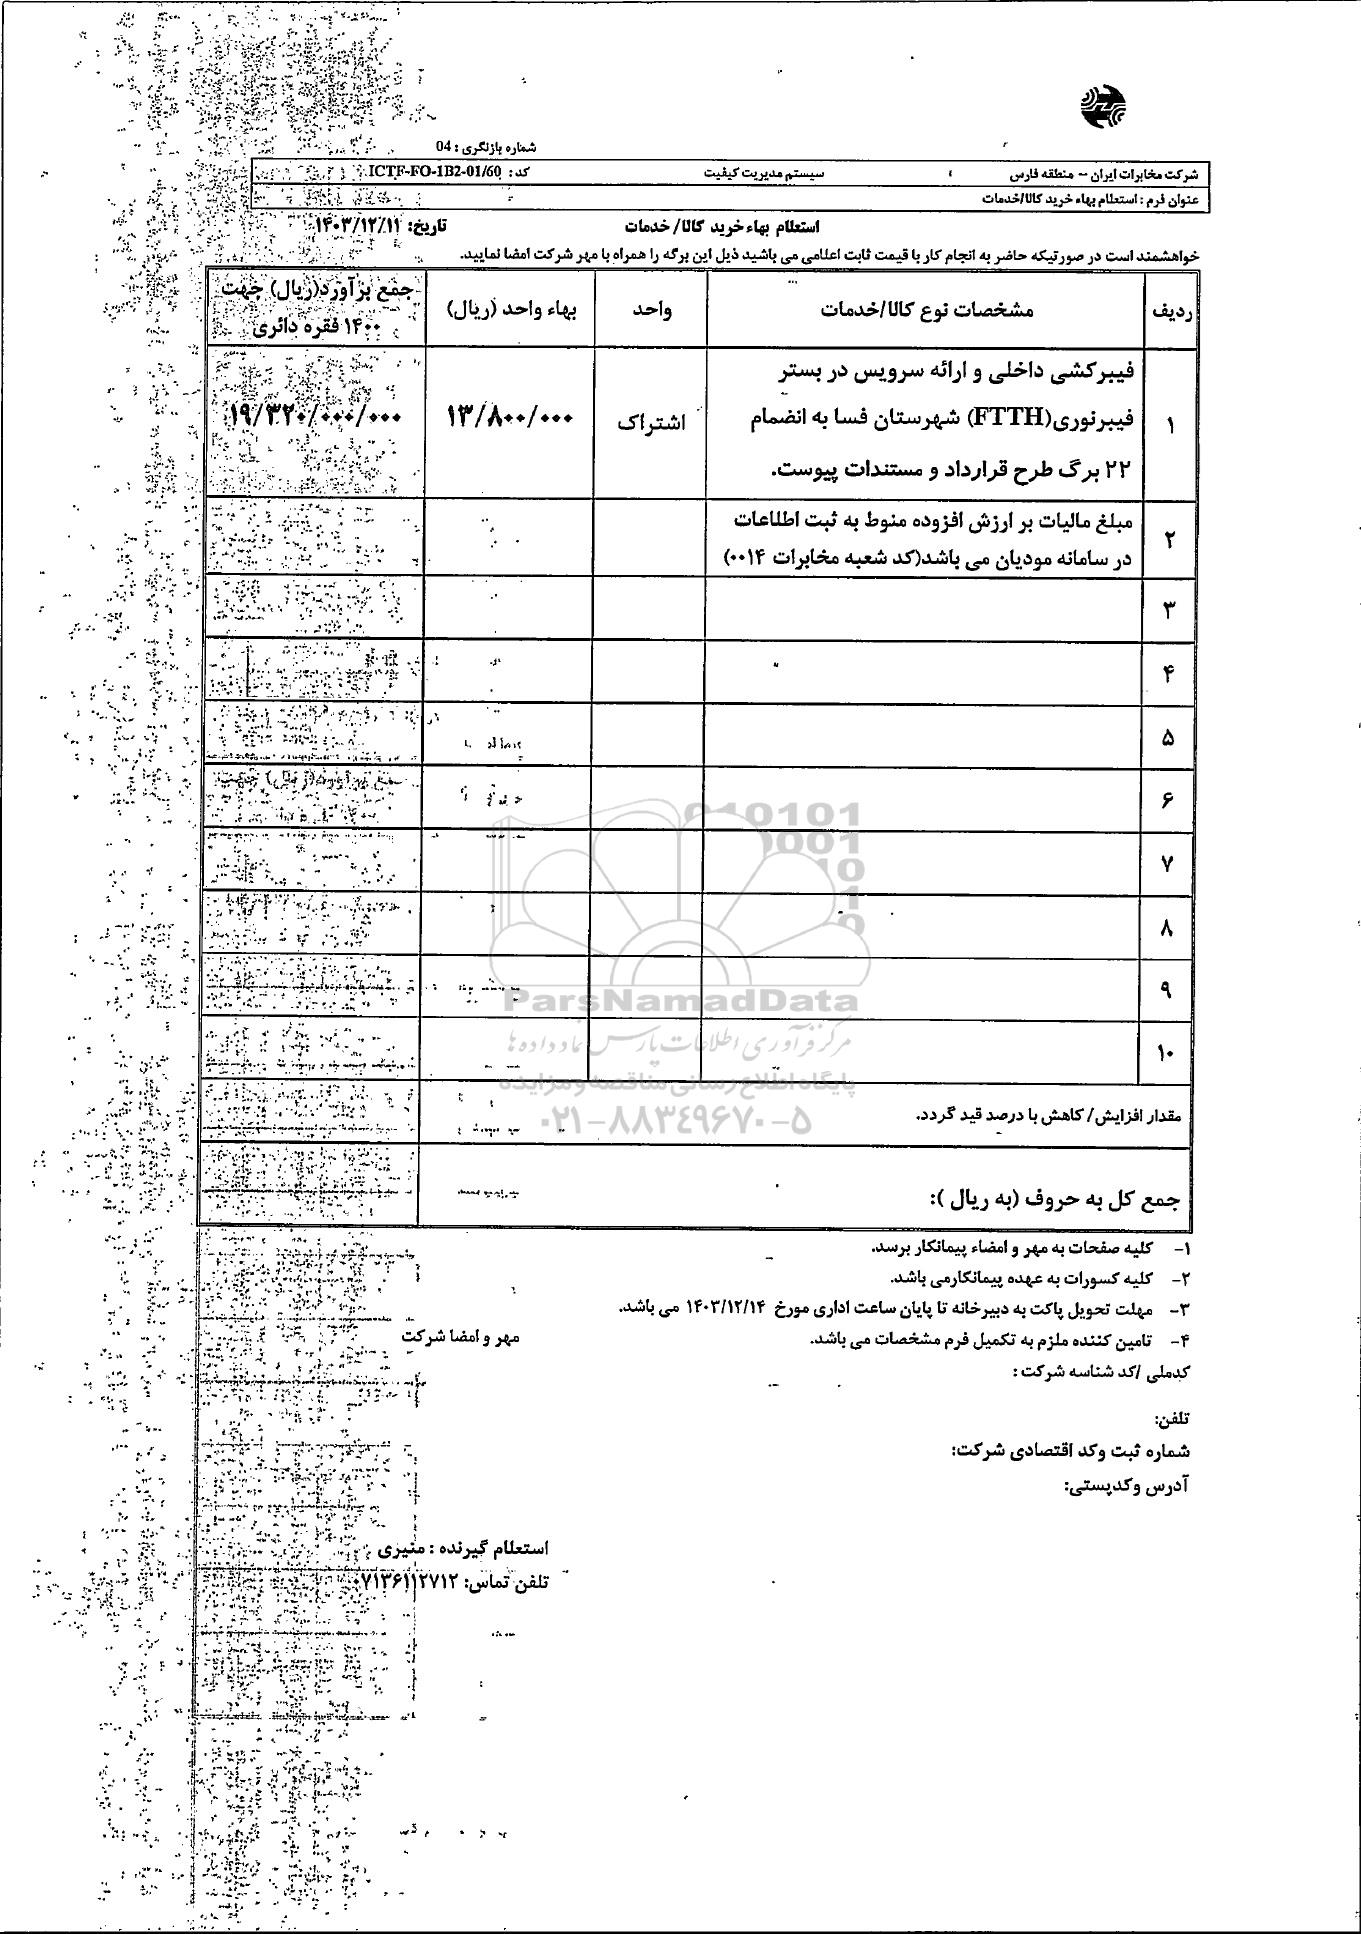 شماره بازنگری : 04
شرکت مخابرات ایران – منطقه فارس سیستم مدیریت کیفیت کد : ICTF-FO-1B2-01/60
عنوان فرم : استعلام بهاء خرید کالا/خدمات
استعلام بهاء خرید کالا/ خدمات تاریخ: ۱۴۰۳/۱۲/۱۱
خواهشمند است در صورتیکه حاضر به انجام کار با قیمت ثابت اعلامی می باشید ذیل این برگه را همراه با مهر شرکت امضا نمایید.
ردیف مشخصات نوع کالا/خدمات واحد بهاء واحد (ریال) جمع برآورد(ریال) جهت
۱۴۰۰ فقره دائری
۱ فیبرکشی داخلی و ارائه سرویس در بستر
فیبرنوری(FTTH) شهرستان فسا به انضمام
۲۲ برگ طرح قرارداد و مستندات پیوست.
اشتراک ۱۳/۸۰۰/۰۰۰ ۱۹/۳۲۰/۰۰۰/۰۰۰
۲ مبلغ مالیات بر ارزش افزوده منوط به ثبت اطلاعات
در سامانه مودیان می باشد(کد شعبه مخابرات ۰۰۱۴)
۳
۴
۵
۶
۷
۸
۹
۱۰
مقدار افزایش/ کاهش با درصد قید گردد.
جمع کل به حروف (به ریال ):
۱- کلیه صفحات به مهر و امضاء پیمانکار برسد.
۲- کلیه کسورات به عهده پیمانکارمی باشد.
۳- مهلت تحویل پاکت به دبیرخانه تا پایان ساعت اداری مورخ ۱۴۰۳/۱۲/۱۴ می باشد.
۴- تامین کننده ملزم به تکمیل فرم مشخصات می باشد. مهر و امضا شرکت
کدملی /کد شناسه شرکت :
تلفن:
شماره ثبت وکد اقتصادی شرکت:
آدرس وکدپستی:
استعلام گیرنده : منیری
تلفن تماس: ۰۷۱۳۶۱۱۲۷۱۲
010101
ParsNamadData
مرکز فرآوری اطلاعات پارس نماد داده ها
پایگاه اطلاع رسانی مناقصه و مزایده
۰۲۱-۸۸۳۴۹۶۷۰-۵